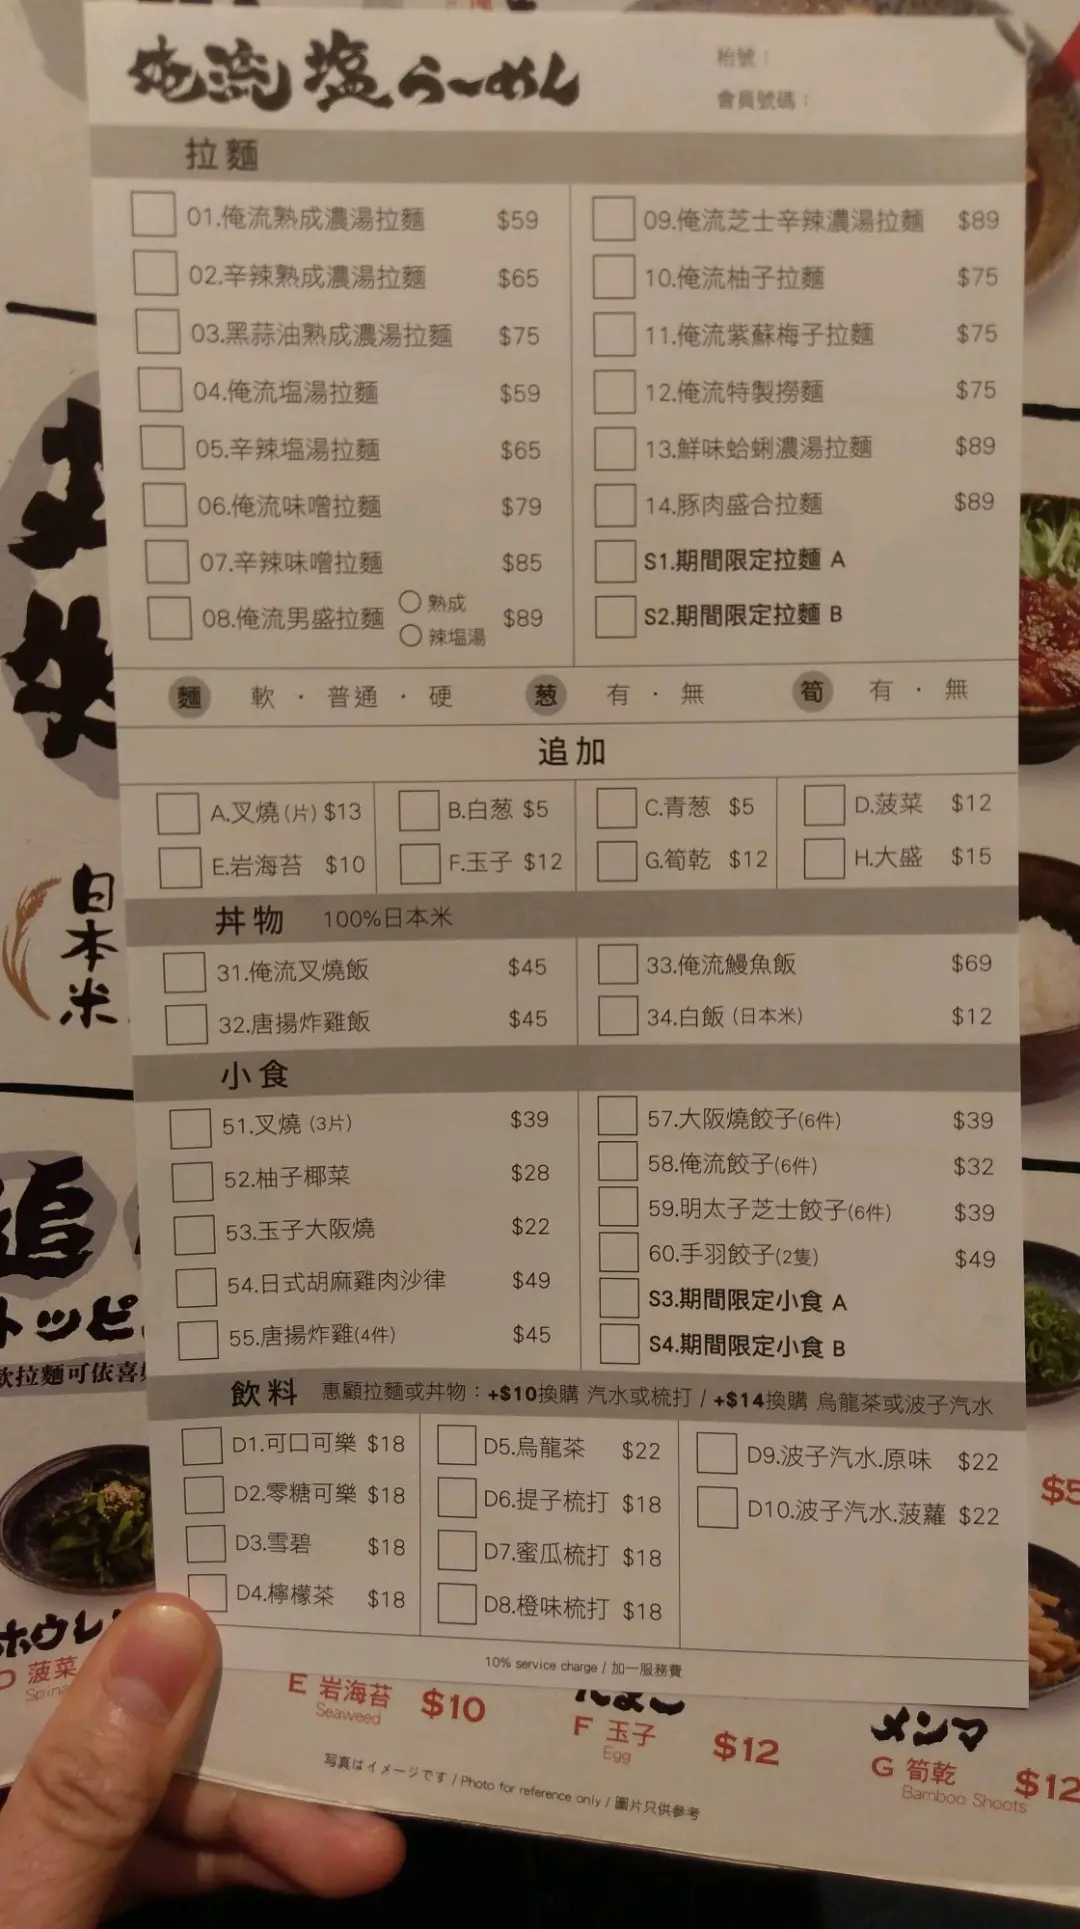 俺流塩らーめん
枱號：
會員號碼：
拉麵
01.俺流熟成濃湯拉麵 $59
02.辛辣熟成濃湯拉麵 $65
03.黑蒜油熟成濃湯拉麵 $75
04.俺流塩湯拉麵 $59
05.辛辣塩湯拉麵 $65
06.俺流味噌拉麵 $79
07.辛辣味噌拉麵 $85
08.俺流男盛拉麵 熟成 辣塩湯 $89
09.俺流芝士辛辣濃湯拉麵 $89
10.俺流柚子拉麵 $75
11.俺流紫蘇梅子拉麵 $75
12.俺流特製撈麵 $75
13.鮮味蛤蜊濃湯拉麵 $89
14.豚肉盛合拉麵 $89
S1.期間限定拉麵 A
S2.期間限定拉麵 B
麵 軟 · 普通 · 硬 葱 有 · 無 筍 有 · 無
追加
A.叉燒(片) $13 B.白葱 $5 C.青葱 $5 D.菠菜 $12
E.岩海苔 $10 F.玉子 $12 G.筍乾 $12 H.大盛 $15
丼物 100%日本米
31.俺流叉燒飯 $45
32.唐揚炸雞飯 $45
33.俺流鰻魚飯 $69
34.白飯 (日本米) $12
小食
51.叉燒 (3片) $39
52.柚子椰菜 $28
53.玉子大阪燒 $22
54.日式胡麻雞肉沙律 $49
55.唐揚炸雞(4件) $45
57.大阪燒餃子(6件) $39
58.俺流餃子(6件) $32
59.明太子芝士餃子(6件) $39
60.手羽餃子(2隻) $49
S3.期間限定小食 A
S4.期間限定小食 B
飲料 惠顧拉麵或丼物：+$10換購 汽水或梳打 / +$14換購 烏龍茶或波子汽水
D1.可口可樂 $18
D2.零糖可樂 $18
D3.雪碧 $18
D4.檸檬茶 $18
D5.烏龍茶 $22
D6.提子梳打 $18
D7.蜜瓜梳打 $18
D8.橙味梳打 $18
D9.波子汽水.原味 $22
D10.波子汽水.菠蘿 $22
10% service charge / 加一服務費
日本米
追
トッピ
款拉麵可依喜
ホウレ
D 菠菜
Spina
E 岩海苔 $10
Seaweed
たまご
F 玉子 $12
Egg
メンマ
G 筍乾 $12
Bamboo Shoots
$5
写真はイメージです / Photo for reference only / 圖片只供參考